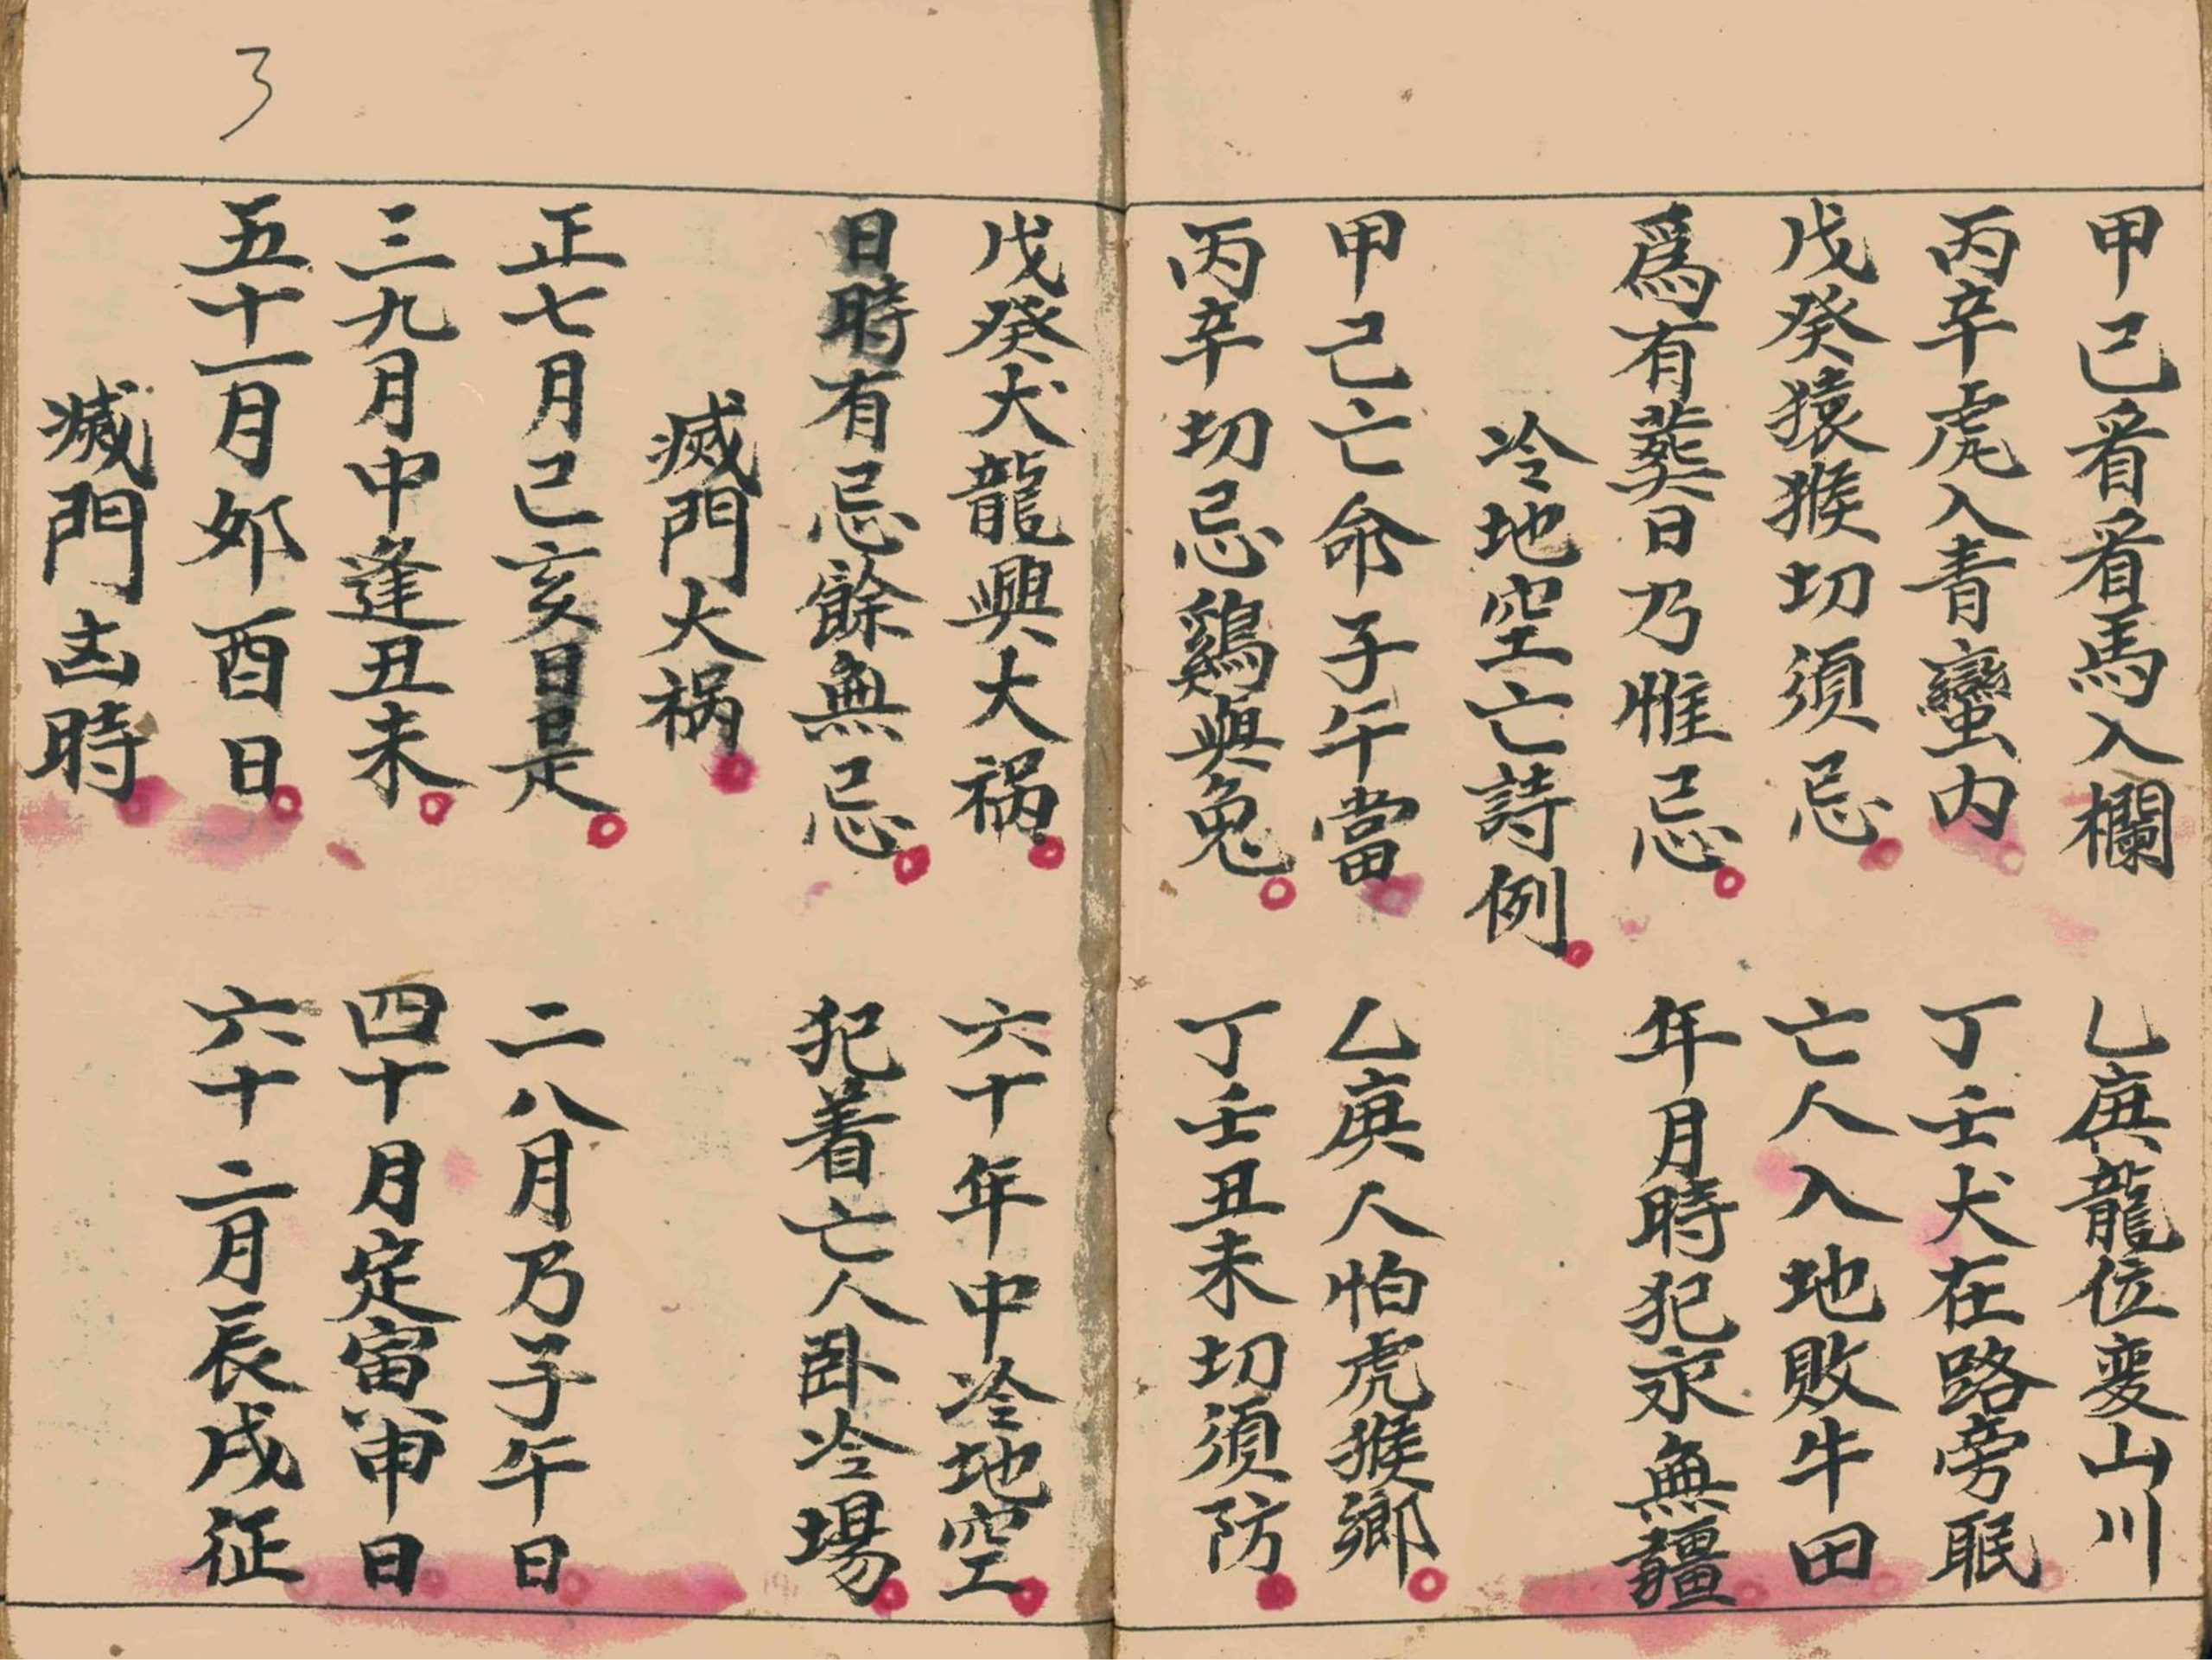 甲己看看馬入欄 乙庚龍位变山川
丙辛虎入青蠻內 丁壬犬在路旁眠
戊癸猿猴切須忌 亡人入地敗牛田
爲有葬日乃惟忌 年月時犯永無疆
冷地空亡詩例
甲己亡命子午當 乙庚人怕虎猴鄉
丙辛切忌鷄與兔 丁壬丑未切須防
戊癸犬龍興大祸 六十年中冷地空
日時有忌餘無忌 犯着亡人卧冷場
滅門大祸
正七月己亥日是 二八月乃子午日
三九月中逢丑未 四十月定寅申日
五十一月卯酉日 六十二月辰戌征
滅門凶時
3